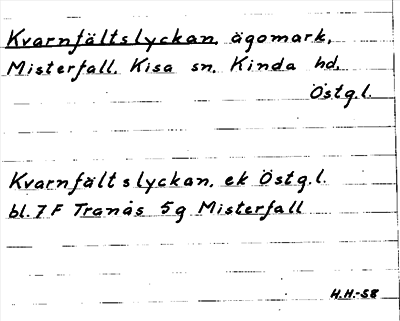 Kvarnfältslyckan, ägomark,
Misterfall, Kisa sn, Kinda hd,
Östg.l.
Kvarnfältslyckan, ek Östg.l.
bl. 7 F Tranås 5g Misterfall
H.H.-58